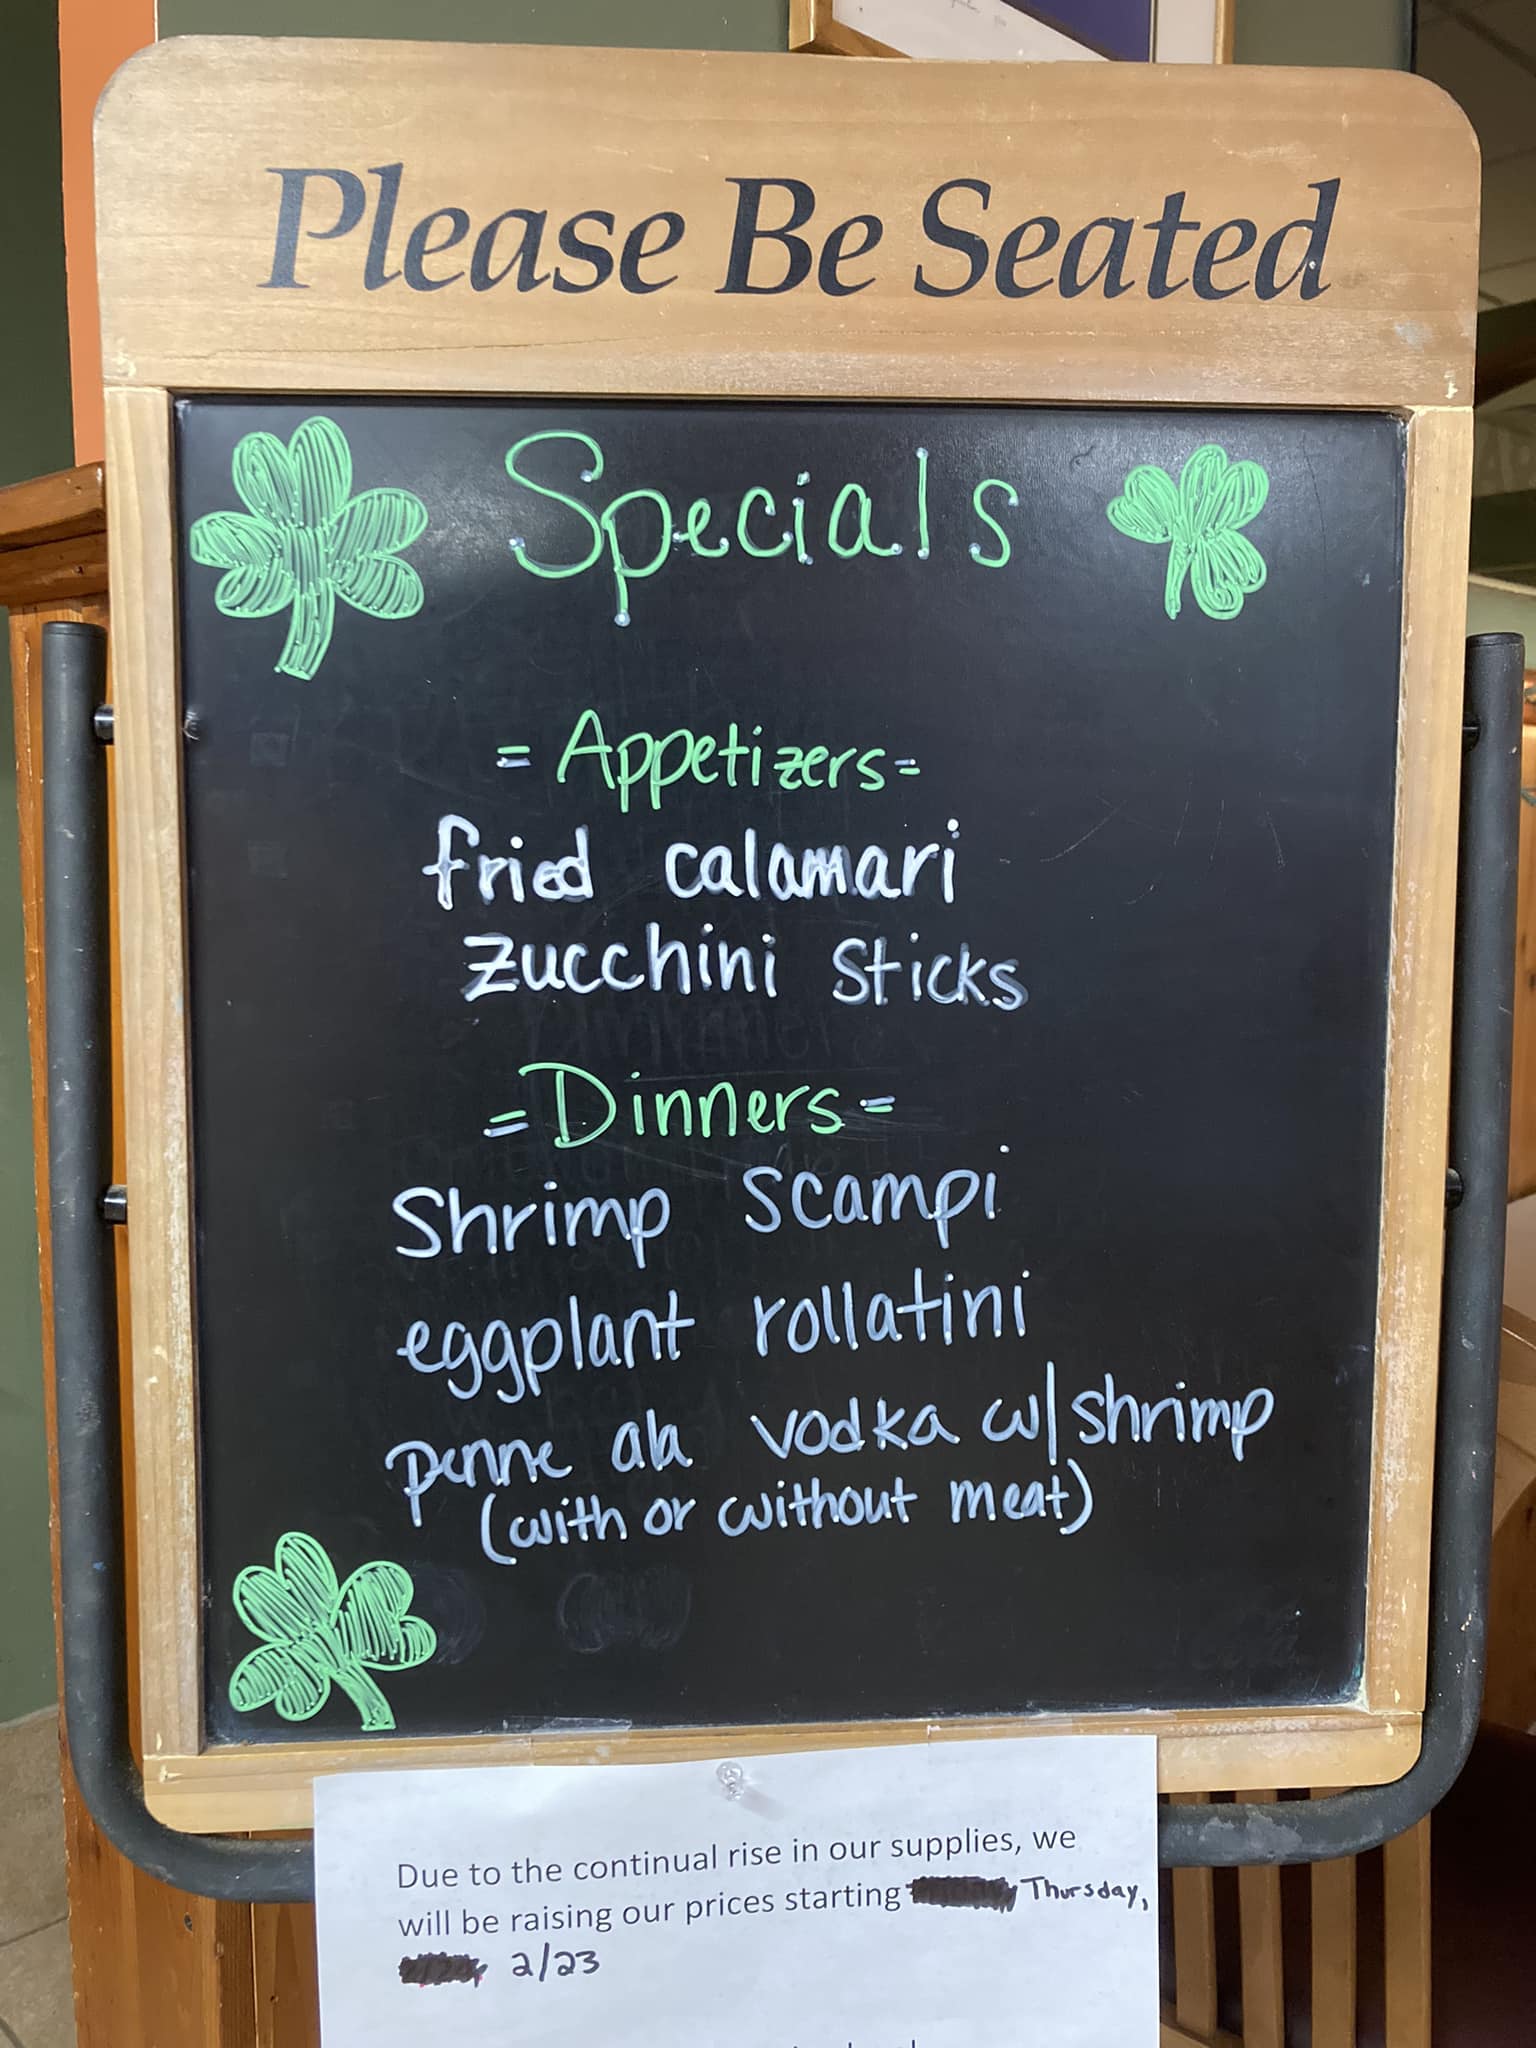 Please Be Seated
Specials
= Appetizers =
fried calamari
zucchini sticks
= Dinners =
Shrimp scampi
eggplant rollatini
penne ala vodka w/shrimp
(with or without meat)
Due to the continual rise in our supplies, we
will be raising our prices starting Thursday,
2/23